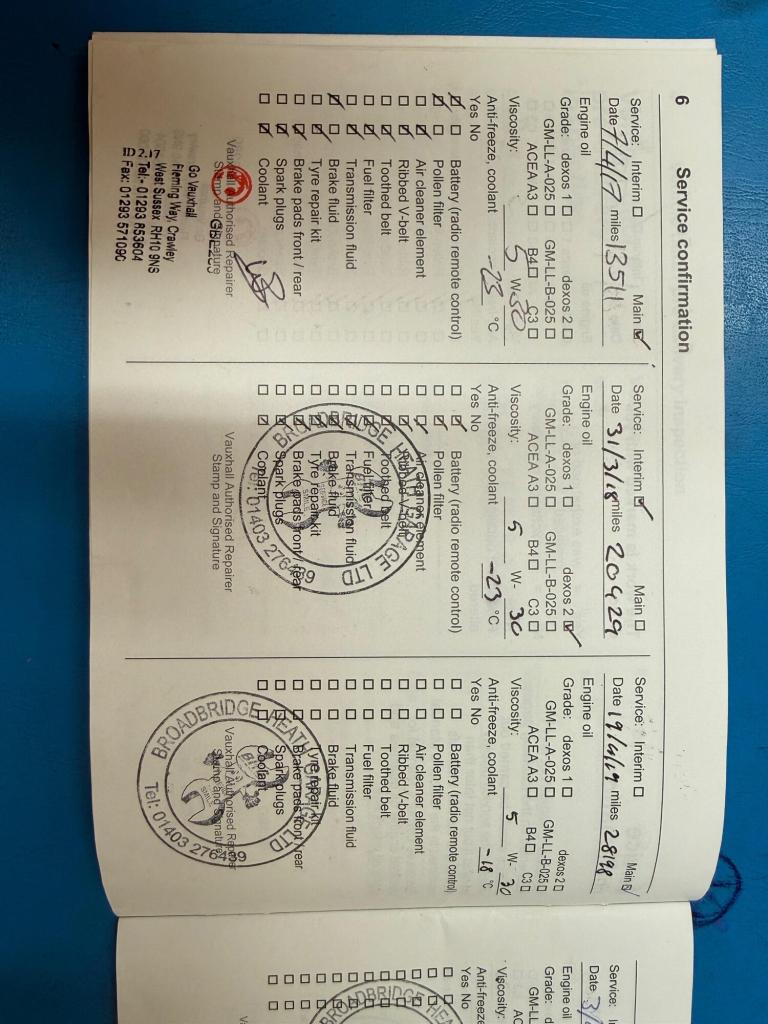 6 Service confirmation
Service: Interim ☐ Main ☑
Date 7/4/17 miles 13511
Engine oil
Grade: dexos 1 ☐ dexos 2 ☐
GM-LL-A-025 ☐ GM-LL-B-025 ☐
ACEA A3 ☐ B4 ☐ C3 ☐
Viscosity: 5 W-30
Anti-freeze, coolant -23 °C
Yes No
☑ ☐ Battery (radio remote control)
☑ ☐ Pollen filter
☐ ☑ Air cleaner element
☐ ☑ Ribbed V-belt
☐ ☑ Toothed belt
☐ ☑ Fuel filter
☐ ☑ Transmission fluid
☑ ☐ Brake fluid
☐ ☑ Tyre repair kit
☐ ☑ Brake pads front / rear
☐ ☑ Spark plugs
☐ ☑ Coolant
Vauxhall Authorised Repairer
Stamp and Signature
Go Vauxhall
Fleming Way, Crawley
West Sussex RH10 9NS
Tel:- 01293 853604
Fax: 01293 571090
Service: Interim ☑ Main ☐
Date 31/3/18 miles 20429
Engine oil
Grade: dexos 1 ☐ dexos 2 ☑
GM-LL-A-025 ☐ GM-LL-B-025 ☐
ACEA A3 ☐ B4 ☐ C3 ☐
Viscosity: 5 W-30
Anti-freeze, coolant -23 °C
Yes No
☐ ☑ Battery (radio remote control)
☐ ☑ Pollen filter
☐ ☑ Air cleaner element
☐ ☑ Ribbed V-belt
☐ ☑ Toothed belt
☐ ☑ Fuel filter
☐ ☑ Transmission fluid
☐ ☑ Brake fluid
☐ ☑ Tyre repair kit
☐ ☑ Brake pads front / rear
☐ ☑ Spark plugs
☐ ☑ Coolant
BROADBRIDGE HEATH GARAGE LTD
Tel: 01403 276499
Vauxhall Authorised Repairer
Stamp and Signature
Service: Interim ☐ Main ☑
Date 19/4/19 miles 28198
Engine oil
Grade: dexos 1 ☐ dexos 2 ☐
GM-LL-A-025 ☐ GM-LL-B-025 ☐
ACEA A3 ☐ B4 ☐ C3 ☐
Viscosity: 5 W-30
Anti-freeze, coolant -18 °C
Yes No
☐ ☐ Battery (radio remote control)
☐ ☐ Pollen filter
☐ ☐ Air cleaner element
☐ ☐ Ribbed V-belt
☐ ☐ Toothed belt
☐ ☐ Fuel filter
☐ ☐ Transmission fluid
☐ ☐ Brake fluid
☐ ☐ Tyre repair kit
☐ ☐ Brake pads front / rear
☐ ☐ Spark plugs
☐ ☐ Coolant
BROADBRIDGE HEATH GARAGE LTD
Tel: 01403 276499
Vauxhall Authorised Repairer
Stamp and Signature
Service:
Date
Engine oil
Grade:
GM-LL
ACEA
Viscosity:
Anti-freeze
Yes No
BROADBRIDGE